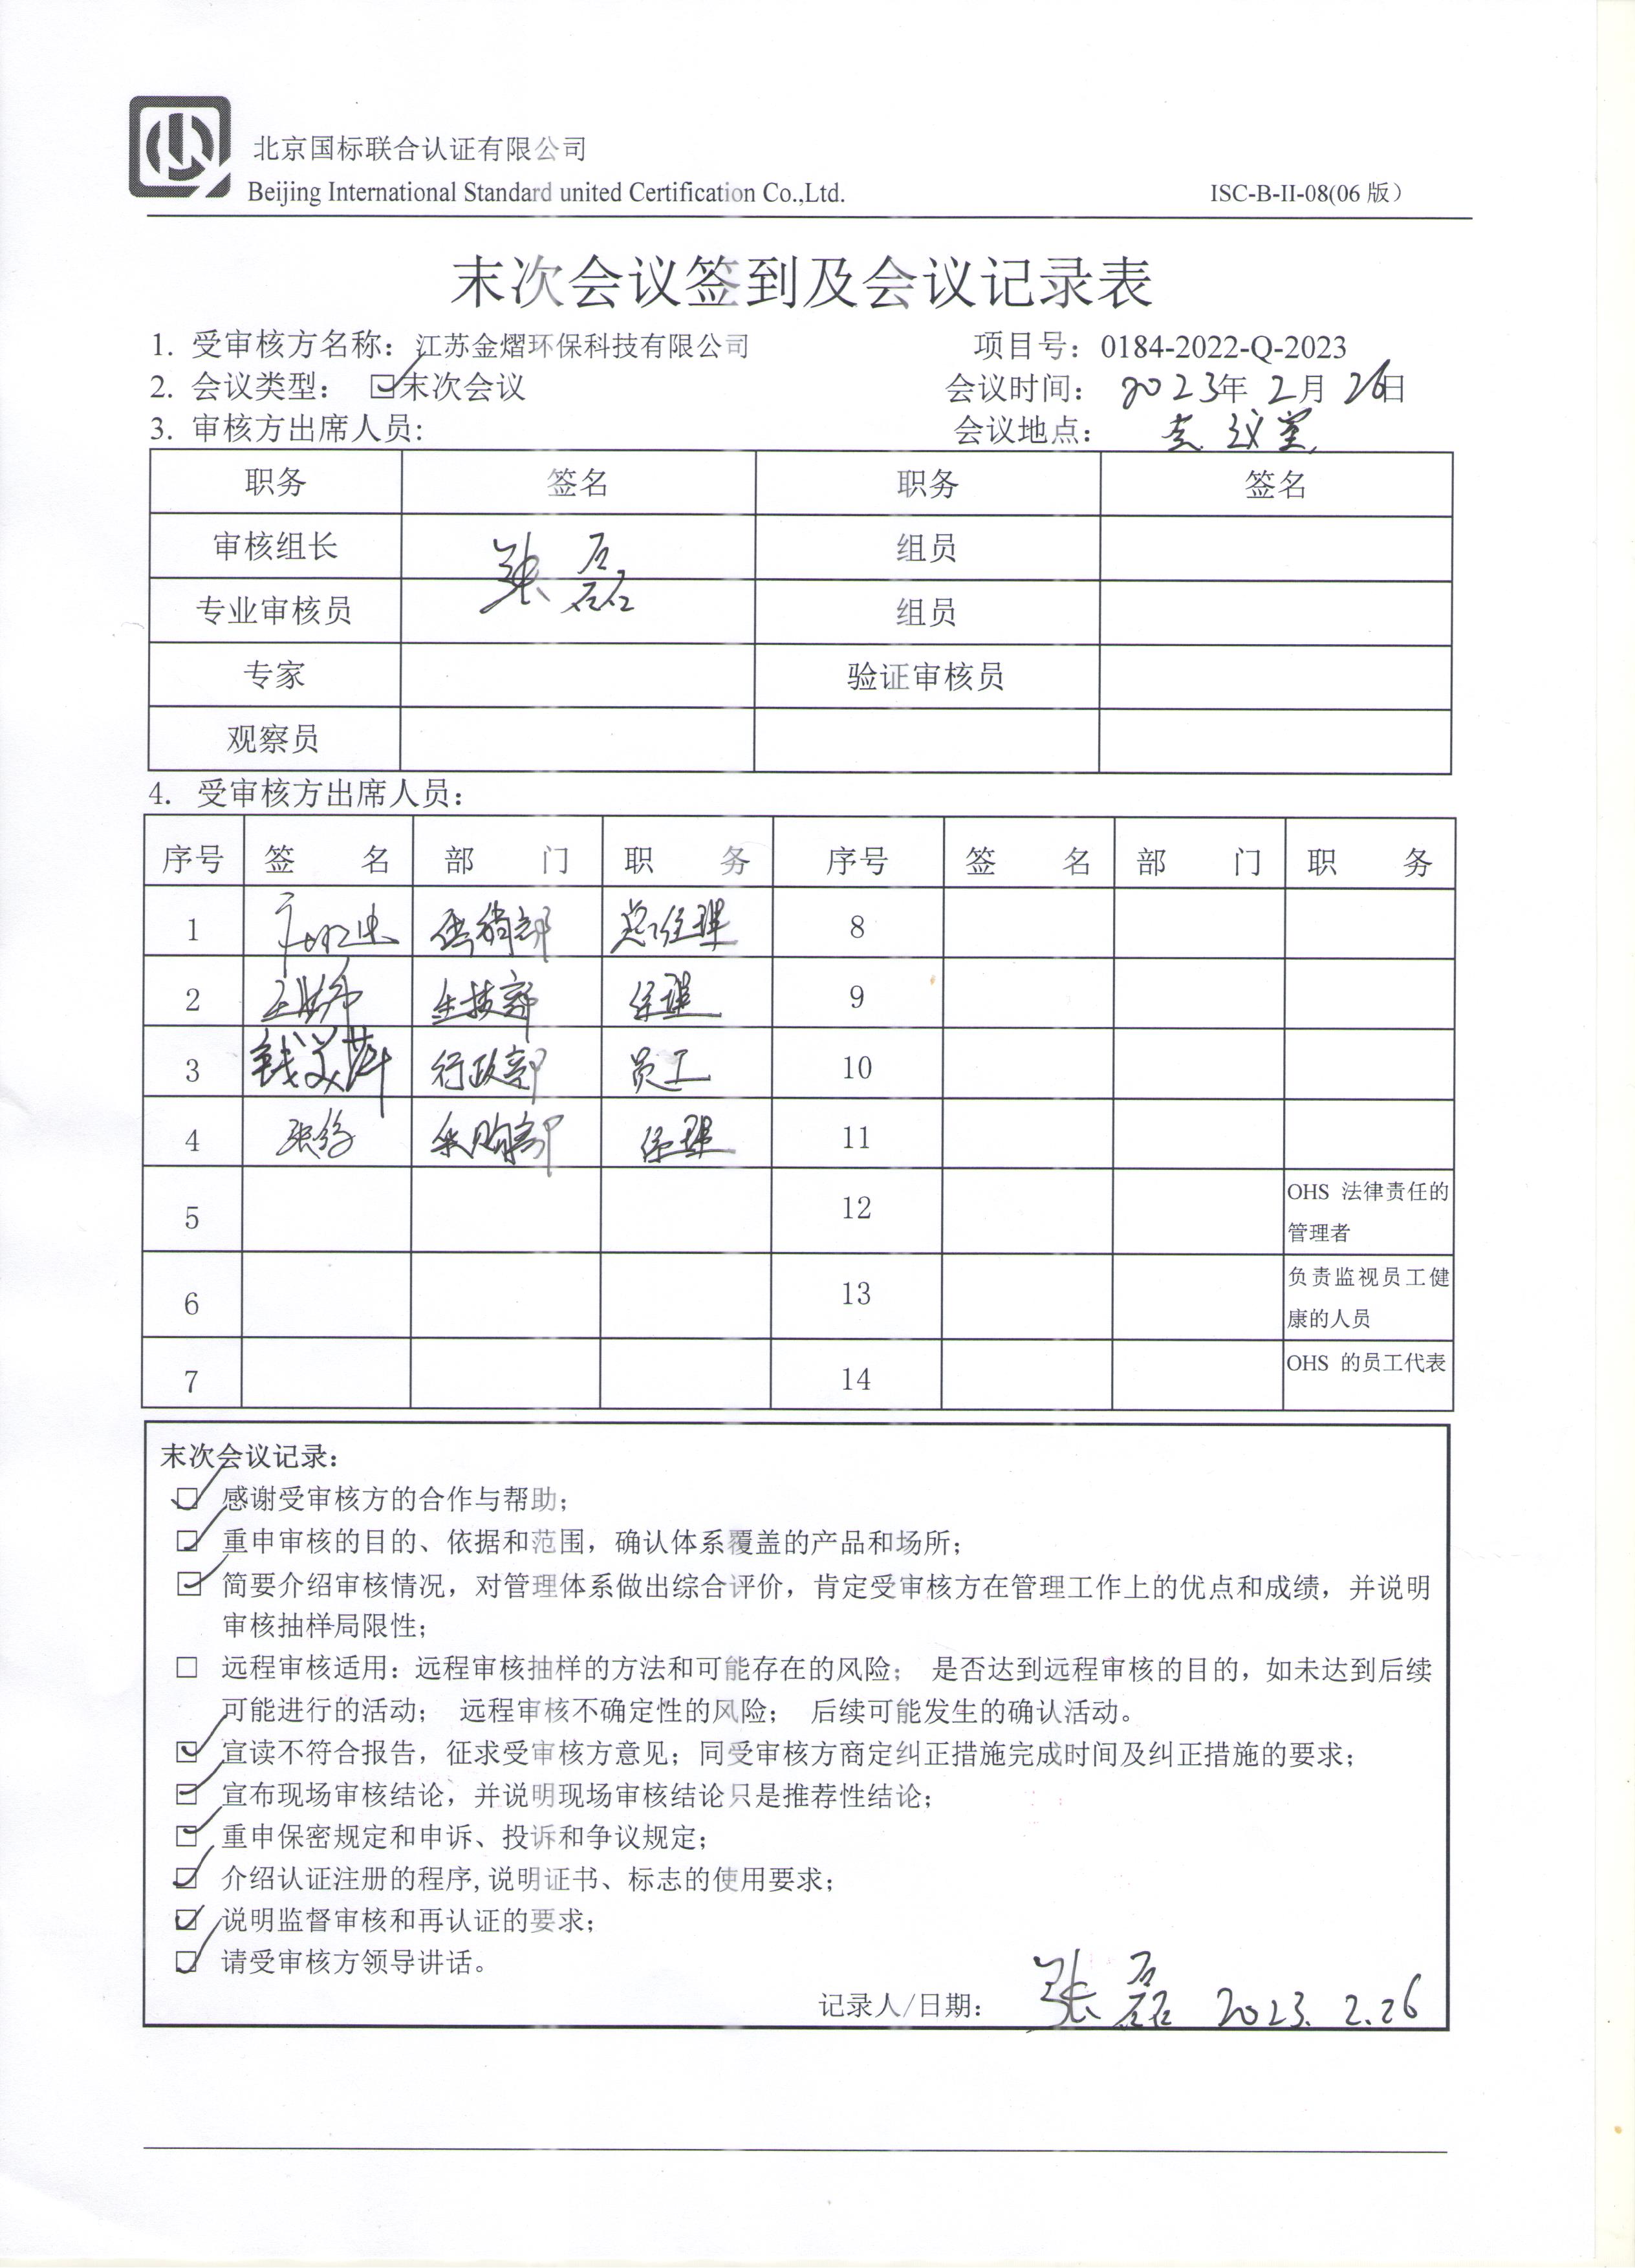 北京国标联合认证有限公司
Beijing International Standard united Certification Co.,Ltd. ISC-B-II-08(06 版)
末次会议签到及会议记录表
1. 受审核方名称：江苏金熠环保科技有限公司 项目号：0184-2022-Q-2023
2. 会议类型： ☑末次会议 会议时间： 2023年 2月 26日
3. 审核方出席人员： 会议地点： 会议室
职务 签名 职务 签名
审核组长 张磊 组员
专业审核员 组员
专家 验证审核员
观察员
4. 受审核方出席人员：
序号 签 名 部 门 职 务 序号 签 名 部 门 职 务
1 营销部 总经理 8
2 生技部 经理 9
3 钱 行政部 员工 10
4 张 采购部 经理 11
5 12 OHS 法律责任的
管理者
6 13 负责监视员工健
康的人员
7 14 OHS 的员工代表
末次会议记录：
☑ 感谢受审核方的合作与帮助；
☑ 重申审核的目的、依据和范围，确认体系覆盖的产品和场所；
☑ 简要介绍审核情况，对管理体系做出综合评价，肯定受审核方在管理工作上的优点和成绩，并说明
审核抽样局限性；
□ 远程审核适用：远程审核抽样的方法和可能存在的风险； 是否达到远程审核的目的，如未达到后续
可能进行的活动； 远程审核不确定性的风险； 后续可能发生的确认活动。
☑ 宣读不符合报告，征求受审核方意见；同受审核方商定纠正措施完成时间及纠正措施的要求；
☑ 宣布现场审核结论，并说明现场审核结论只是推荐性结论；
☑ 重申保密规定和申诉、投诉和争议规定；
☑ 介绍认证注册的程序,说明证书、标志的使用要求；
☑ 说明监督审核和再认证的要求；
☑ 请受审核方领导讲话。
记录人/日期： 张磊 2023. 2.26